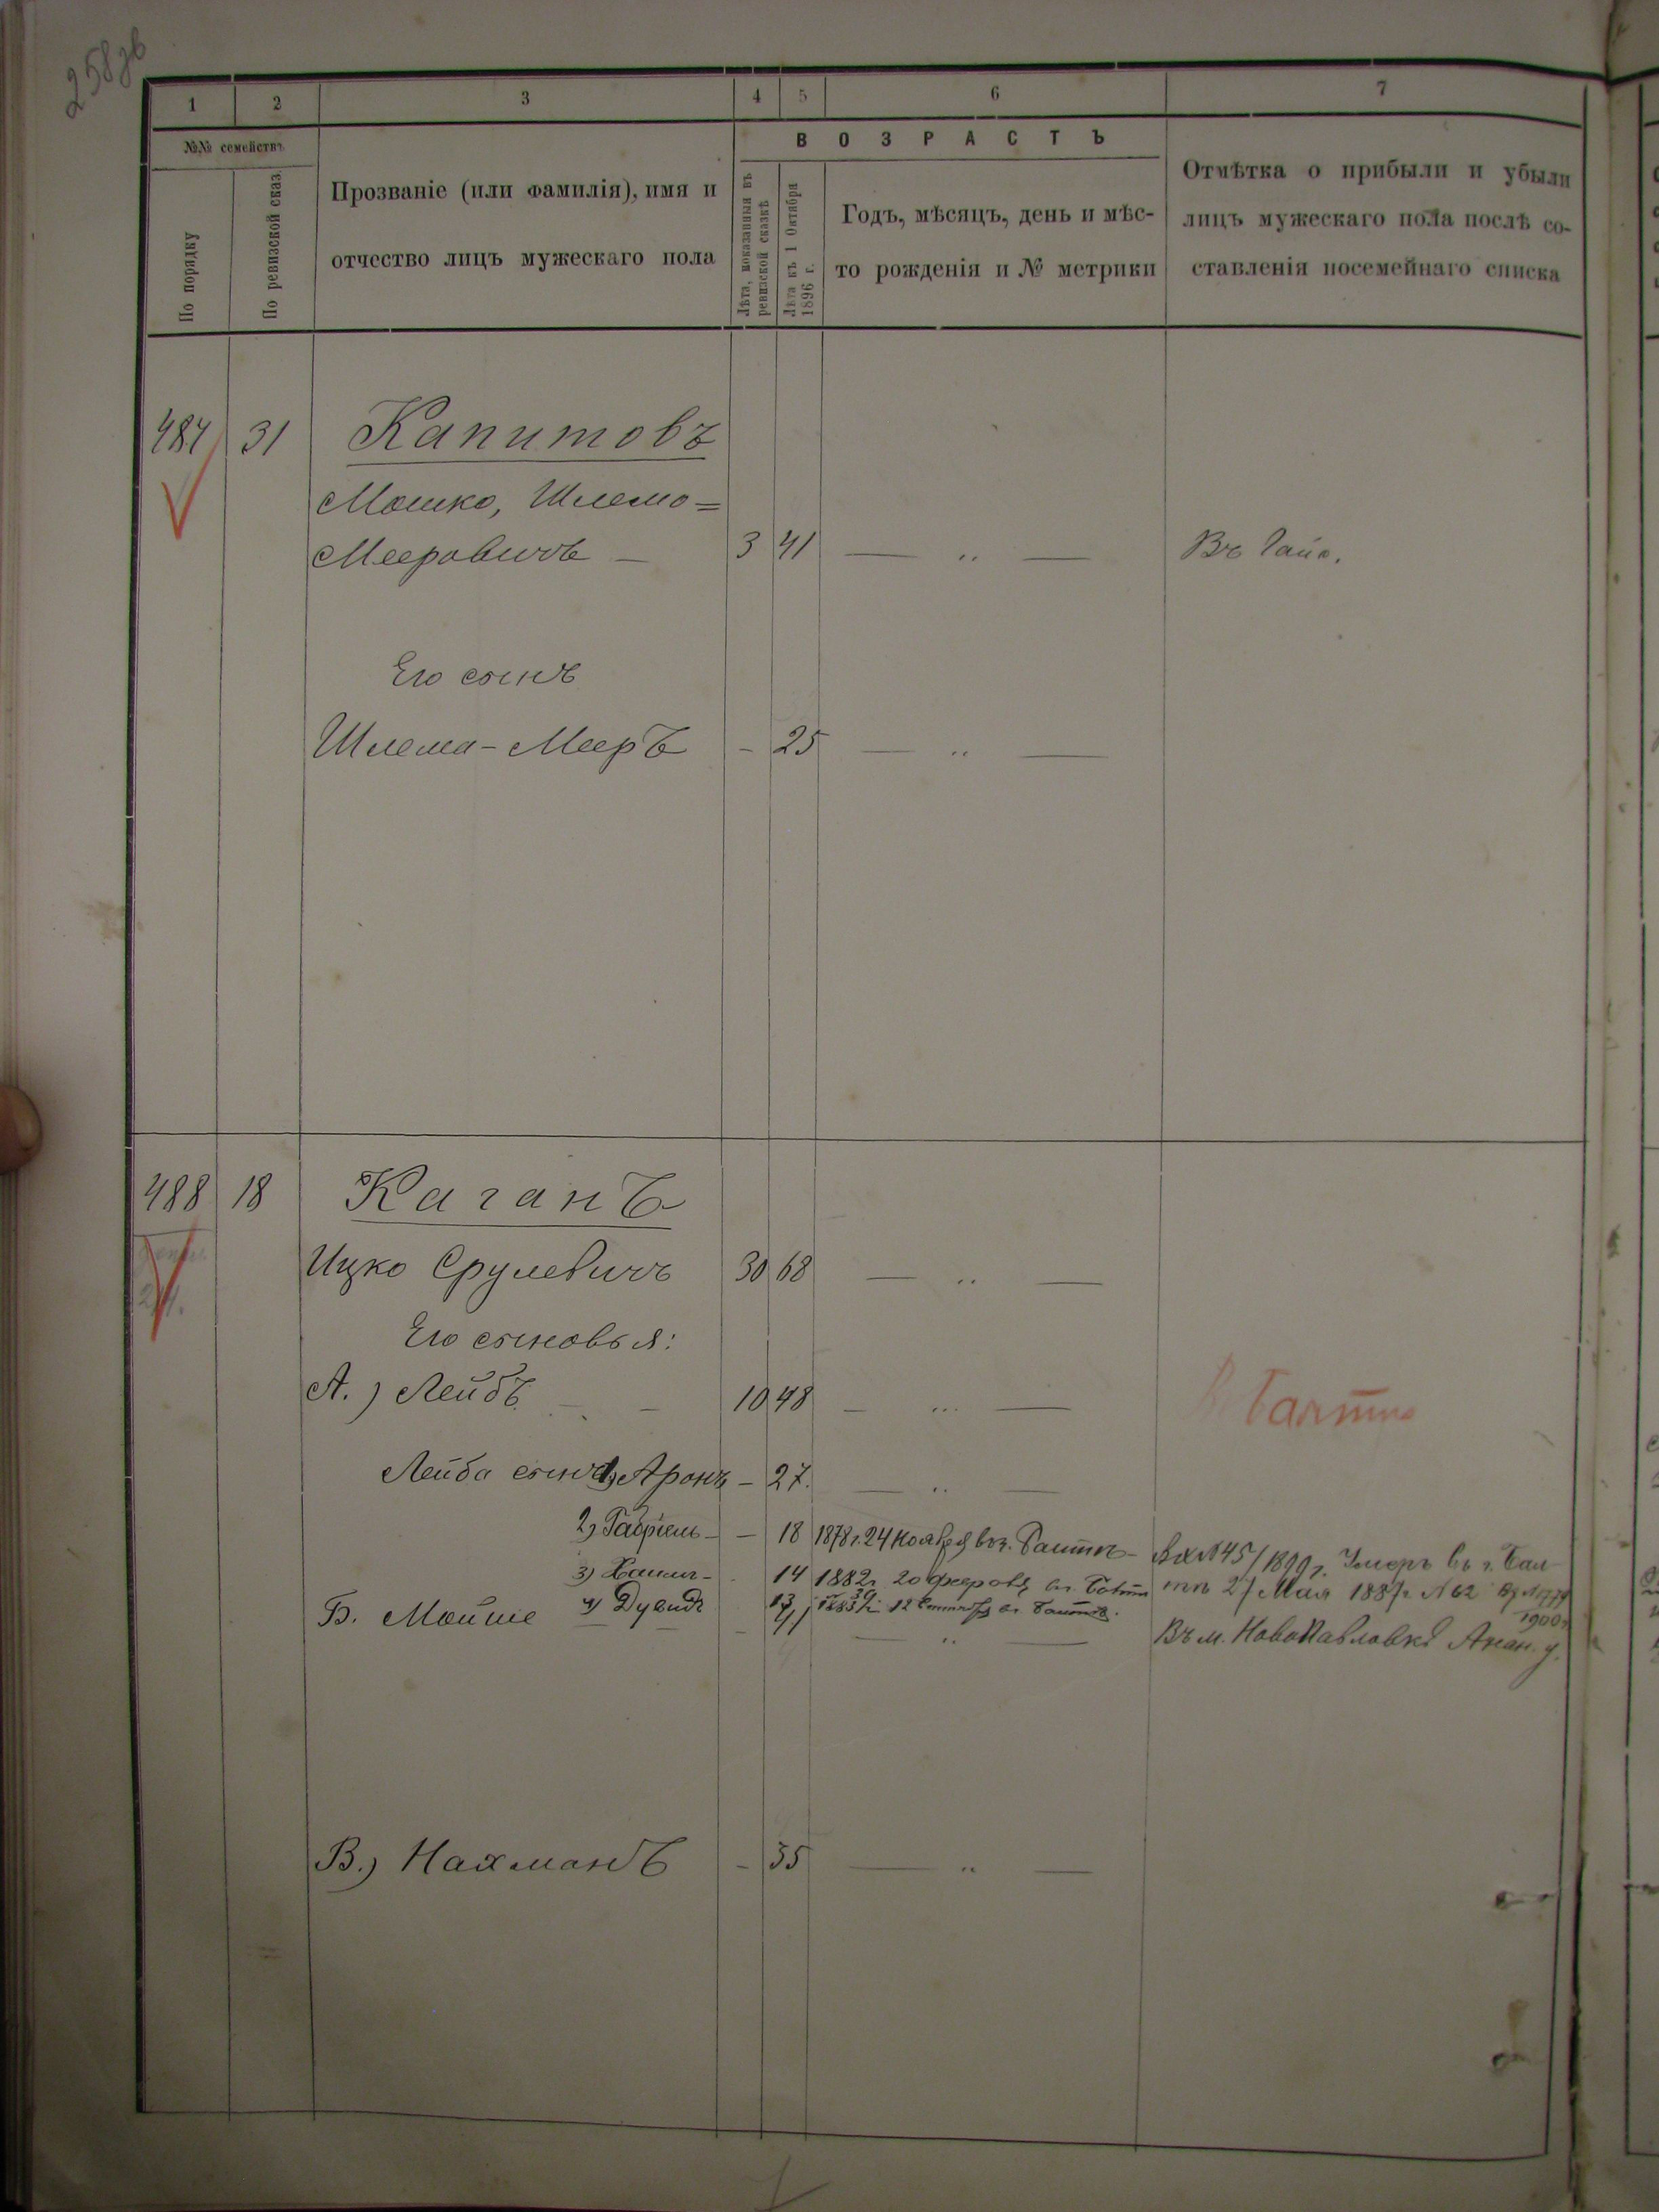 258зв
1 2 3 4 5 6 7
№№ семействъ
По порядку
По ревизской сказ.
Прозваніе (или фамилія), имя и
отчество лицъ мужескаго пола
ВОЗРАСТЪ
Лѣта, показанныя въ
ревизской сказкѣ
Лѣта къ 1 Октября
1896 г.
Годъ, мѣсяцъ, день и мѣс-
то рожденія и № метрики
Отмѣтка о прибыли и убыли
лицъ мужескаго пола послѣ со-
ставленія посемейнаго списка
487 31 Капитовъ
Мошко, Шлемо=
Мееровичъ — 3 41 — „ — Въ Гайс.
Его сынъ
Шлема-Мееръ - 25 — „ —
488 18 Каганъ
Ицко Срулевичъ 30 68 — „ —
Его сыновья:
А.) Лейбъ - - 10 48 — „ — Балтѣ
Лейба сынъ 1) Аронъ - 27. — „ —
2) Габріель - - 18 1878 г. 24 ноября въ г. Балтѣ - Вх № 45/1899 г. Умеръ въ г. Бал-
3) Хаим - 14 1882 г. 20 февр въ г. Балтѣ тѣ 27 Мая 1887 г № 62
4) Дувидъ 13 1883 г. 12 въ г. Балтѣ. 1900 г
Б. Мойше - - - 41 — „ — Въ м. НовоПавловкѣ Анан. у.
В.) Нахманъ - 35 — „ —